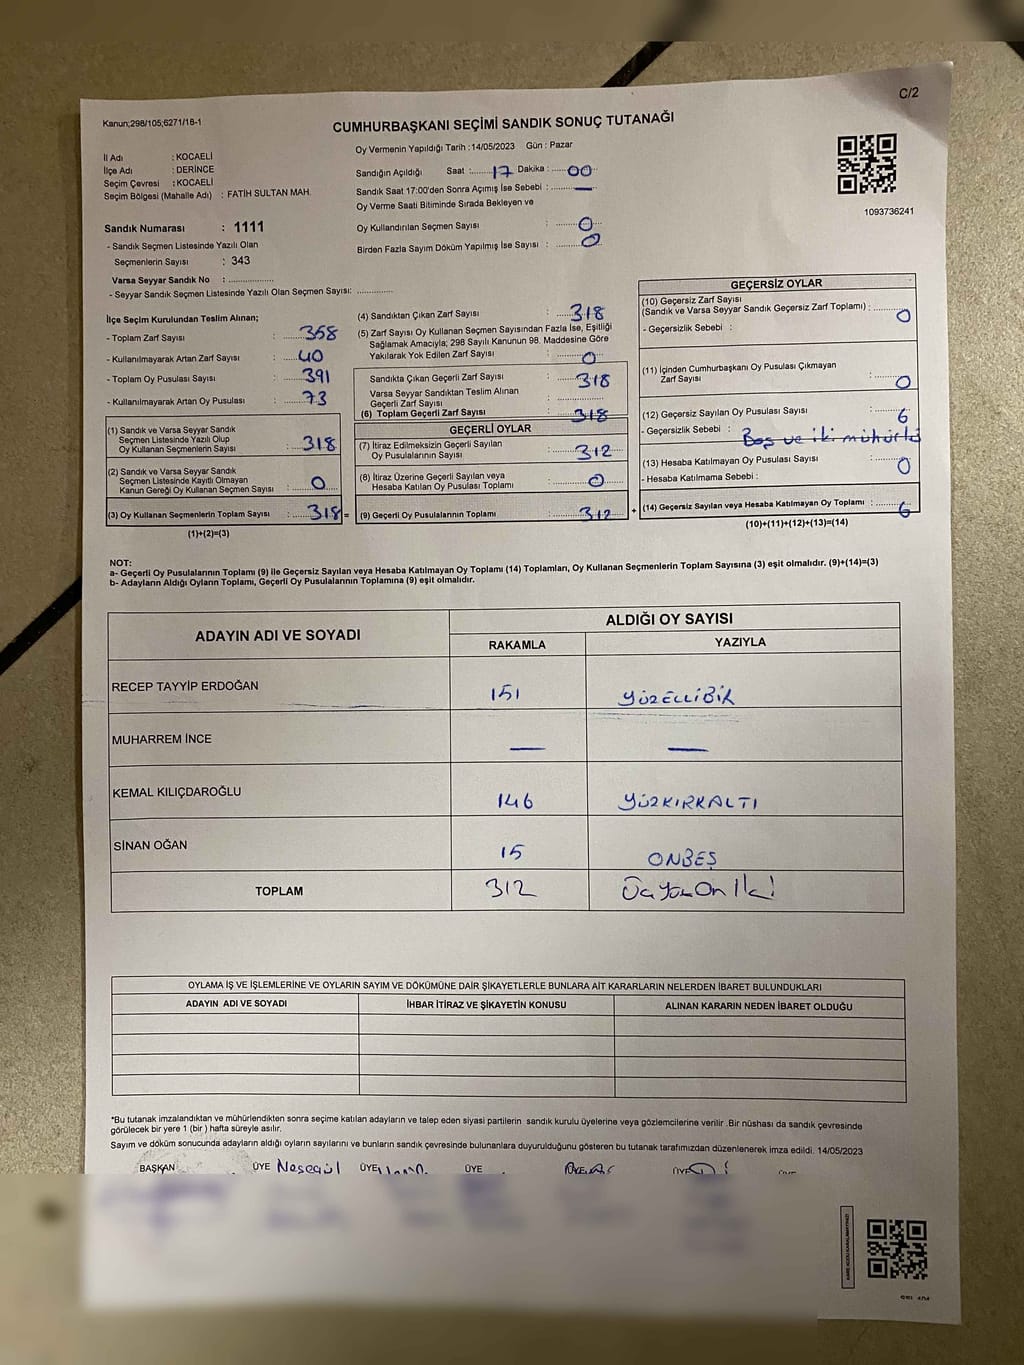 C/2
Kanun;298/105;6271/18-1
CUMHURBAŞKANI SEÇİMİ SANDIK SONUÇ TUTANAĞI
İl Adı : KOCAELİ
İlçe Adı : DERİNCE
Seçim Çevresi : KOCAELİ
Seçim Bölgesi (Mahalle Adı) : FATİH SULTAN MAH.
Sandık Numarası : 1111
- Sandık Seçmen Listesinde Yazılı Olan
Seçmenlerin Sayısı : 343
Varsa Seyyar Sandık No : ................
- Seyyar Sandık Seçmen Listesinde Yazılı Olan Seçmen Sayısı: .............
Oy Vermenin Yapıldığı Tarih :14/05/2023 Gün : Pazar
Sandığın Açıldığı Saat :...... 17 Dakika :..... 00
Sandık Saat 17:00'den Sonra Açımış İse Sebebi : —
Oy Verme Saati Bitiminde Sırada Bekleyen ve
Oy Kullandırılan Seçmen Sayısı : 0
Birden Fazla Sayım Döküm Yapılmış İse Sayısı : 0
1093736241
İlçe Seçim Kurulundan Teslim Alınan;
- Toplam Zarf Sayısı : 358
- Kullanılmayarak Artan Zarf Sayısı : 40
- Toplam Oy Pusulası Sayısı : 391
- Kullanılmayarak Artan Oy Pusulası : 73
(1) Sandık ve Varsa Seyyar Sandık
Seçmen Listesinde Yazılı Olup
Oy Kullanan Seçmenlerin Sayısı : 318
(2) Sandık ve Varsa Seyyar Sandık
Seçmen Listesinde Kayıtlı Olmayan
Kanun Gereği Oy Kullanan Seçmen Sayısı : 0
(3) Oy Kullanan Seçmenlerin Toplam Sayısı : 318 =
(1)+(2)=(3)
(4) Sandıktan Çıkan Zarf Sayısı : 318
(5) Zarf Sayısı Oy Kullanan Seçmen Sayısından Fazla İse, Eşitliği
Sağlamak Amacıyla; 298 Sayılı Kanunun 98. Maddesine Göre
Yakılarak Yok Edilen Zarf Sayısı : 0
Sandıkta Çıkan Geçerli Zarf Sayısı : 318
Varsa Seyyar Sandıktan Teslim Alınan
Geçerli Zarf Sayısı : ................
(6) Toplam Geçerli Zarf Sayısı : 318
GEÇERLİ OYLAR
(7) İtiraz Edilmeksizin Geçerli Sayılan
Oy Pusulalarının Sayısı : 312
(8) İtiraz Üzerine Geçerli Sayılan veya
Hesaba Katılan Oy Pusulası Toplamı : 0
(9) Geçerli Oy Pusulalarının Toplamı : 312 +
GEÇERSİZ OYLAR
(10) Geçersiz Zarf Sayısı
(Sandık ve Varsa Seyyar Sandık Geçersiz Zarf Toplamı) : 0
- Geçersizlik Sebebi :
(11) İçinden Cumhurbaşkanı Oy Pusulası Çıkmayan
Zarf Sayısı : 0
(12) Geçersiz Sayılan Oy Pusulası Sayısı : 6
- Geçersizlik Sebebi : Boş ve iki mühürlü
(13) Hesaba Katılmayan Oy Pusulası Sayısı : 0
- Hesaba Katılmama Sebebi :
(14) Geçersiz Sayılan veya Hesaba Katılmayan Oy Toplamı : 6
(10)+(11)+(12)+(13)=(14)
NOT:
a- Geçerli Oy Pusulalarının Toplamı (9) ile Geçersiz Sayılan veya Hesaba Katılmayan Oy Toplamı (14) Toplamları, Oy Kullanan Seçmenlerin Toplam Sayısına (3) eşit olmalıdır. (9)+(14)=(3)
b- Adayların Aldığı Oyların Toplamı, Geçerli Oy Pusulalarının Toplamına (9) eşit olmalıdır.
ADAYIN ADI VE SOYADI
ALDIĞI OY SAYISI
RAKAMLA YAZIYLA
RECEP TAYYİP ERDOĞAN 151 YÜZELLİBİR
MUHARREM İNCE — —
KEMAL KILIÇDAROĞLU 146 YÜZKIRKALTI
SİNAN OĞAN 15 ONBEŞ
TOPLAM 312 Üç Yüz On İki
OYLAMA İŞ VE İŞLEMLERİNE VE OYLARIN SAYIM VE DÖKÜMÜNE DAİR ŞİKAYETLERLE BUNLARA AİT KARARLARIN NELERDEN İBARET BULUNDUKLARI
ADAYIN ADI VE SOYADI İHBAR İTİRAZ VE ŞİKAYETİN KONUSU ALINAN KARARIN NEDEN İBARET OLDUĞU
*Bu tutanak imzalandıktan ve mühürlendikten sonra seçime katılan adayların ve talep eden siyasi partilerin sandık kurulu üyelerine veya gözlemcilerine verilir .Bir nüshası da sandık çevresinde
görülecek bir yere 1 (bir ) hafta süreyle asılır.
Sayım ve döküm sonucunda adayların aldığı oyların sayılarını ve bunların sandık çevresinde bulunanlara duyurulduğunu gösteren bu tutanak tarafımızdan düzenlenerek imza edildi. 14/05/2023
BAŞKAN ÜYE Nesegül ÜYE ÜYE